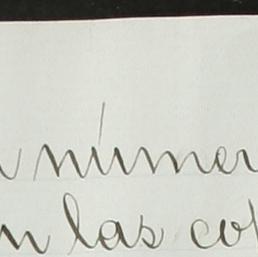 númer
n las co